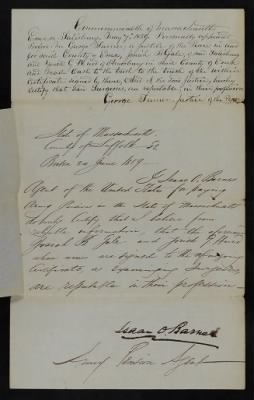 Commonwealth of Massachusetts
Essex ss. Salisbury, May 1849. Personally appeared
before me George Turner, a Justice of the Peace in and
for said County of Essex, Joseph H. Gale, of Salisbury
and of in said County of Essex
and made Oath to the truth of the within
Certificate signed by them, & I the said Justice, hereby
certify that said Surgeons, are reputable in their profession
George Turner, Justice of the Peace
State of Massachusetts
County of Suffolk ss
Boston 20 June 1849
I Isaac O. Barnes
Agent of the United States for paying
Army Pensions in the State of Massachusetts
do hereby Certify that I believe from
reputable information, that the
Joseph H. Gale and
whose names are signed to the
Certificate, as Examining Surgeons,
are reputable in their profession
Isaac O. Barnes
Army Pension Agent